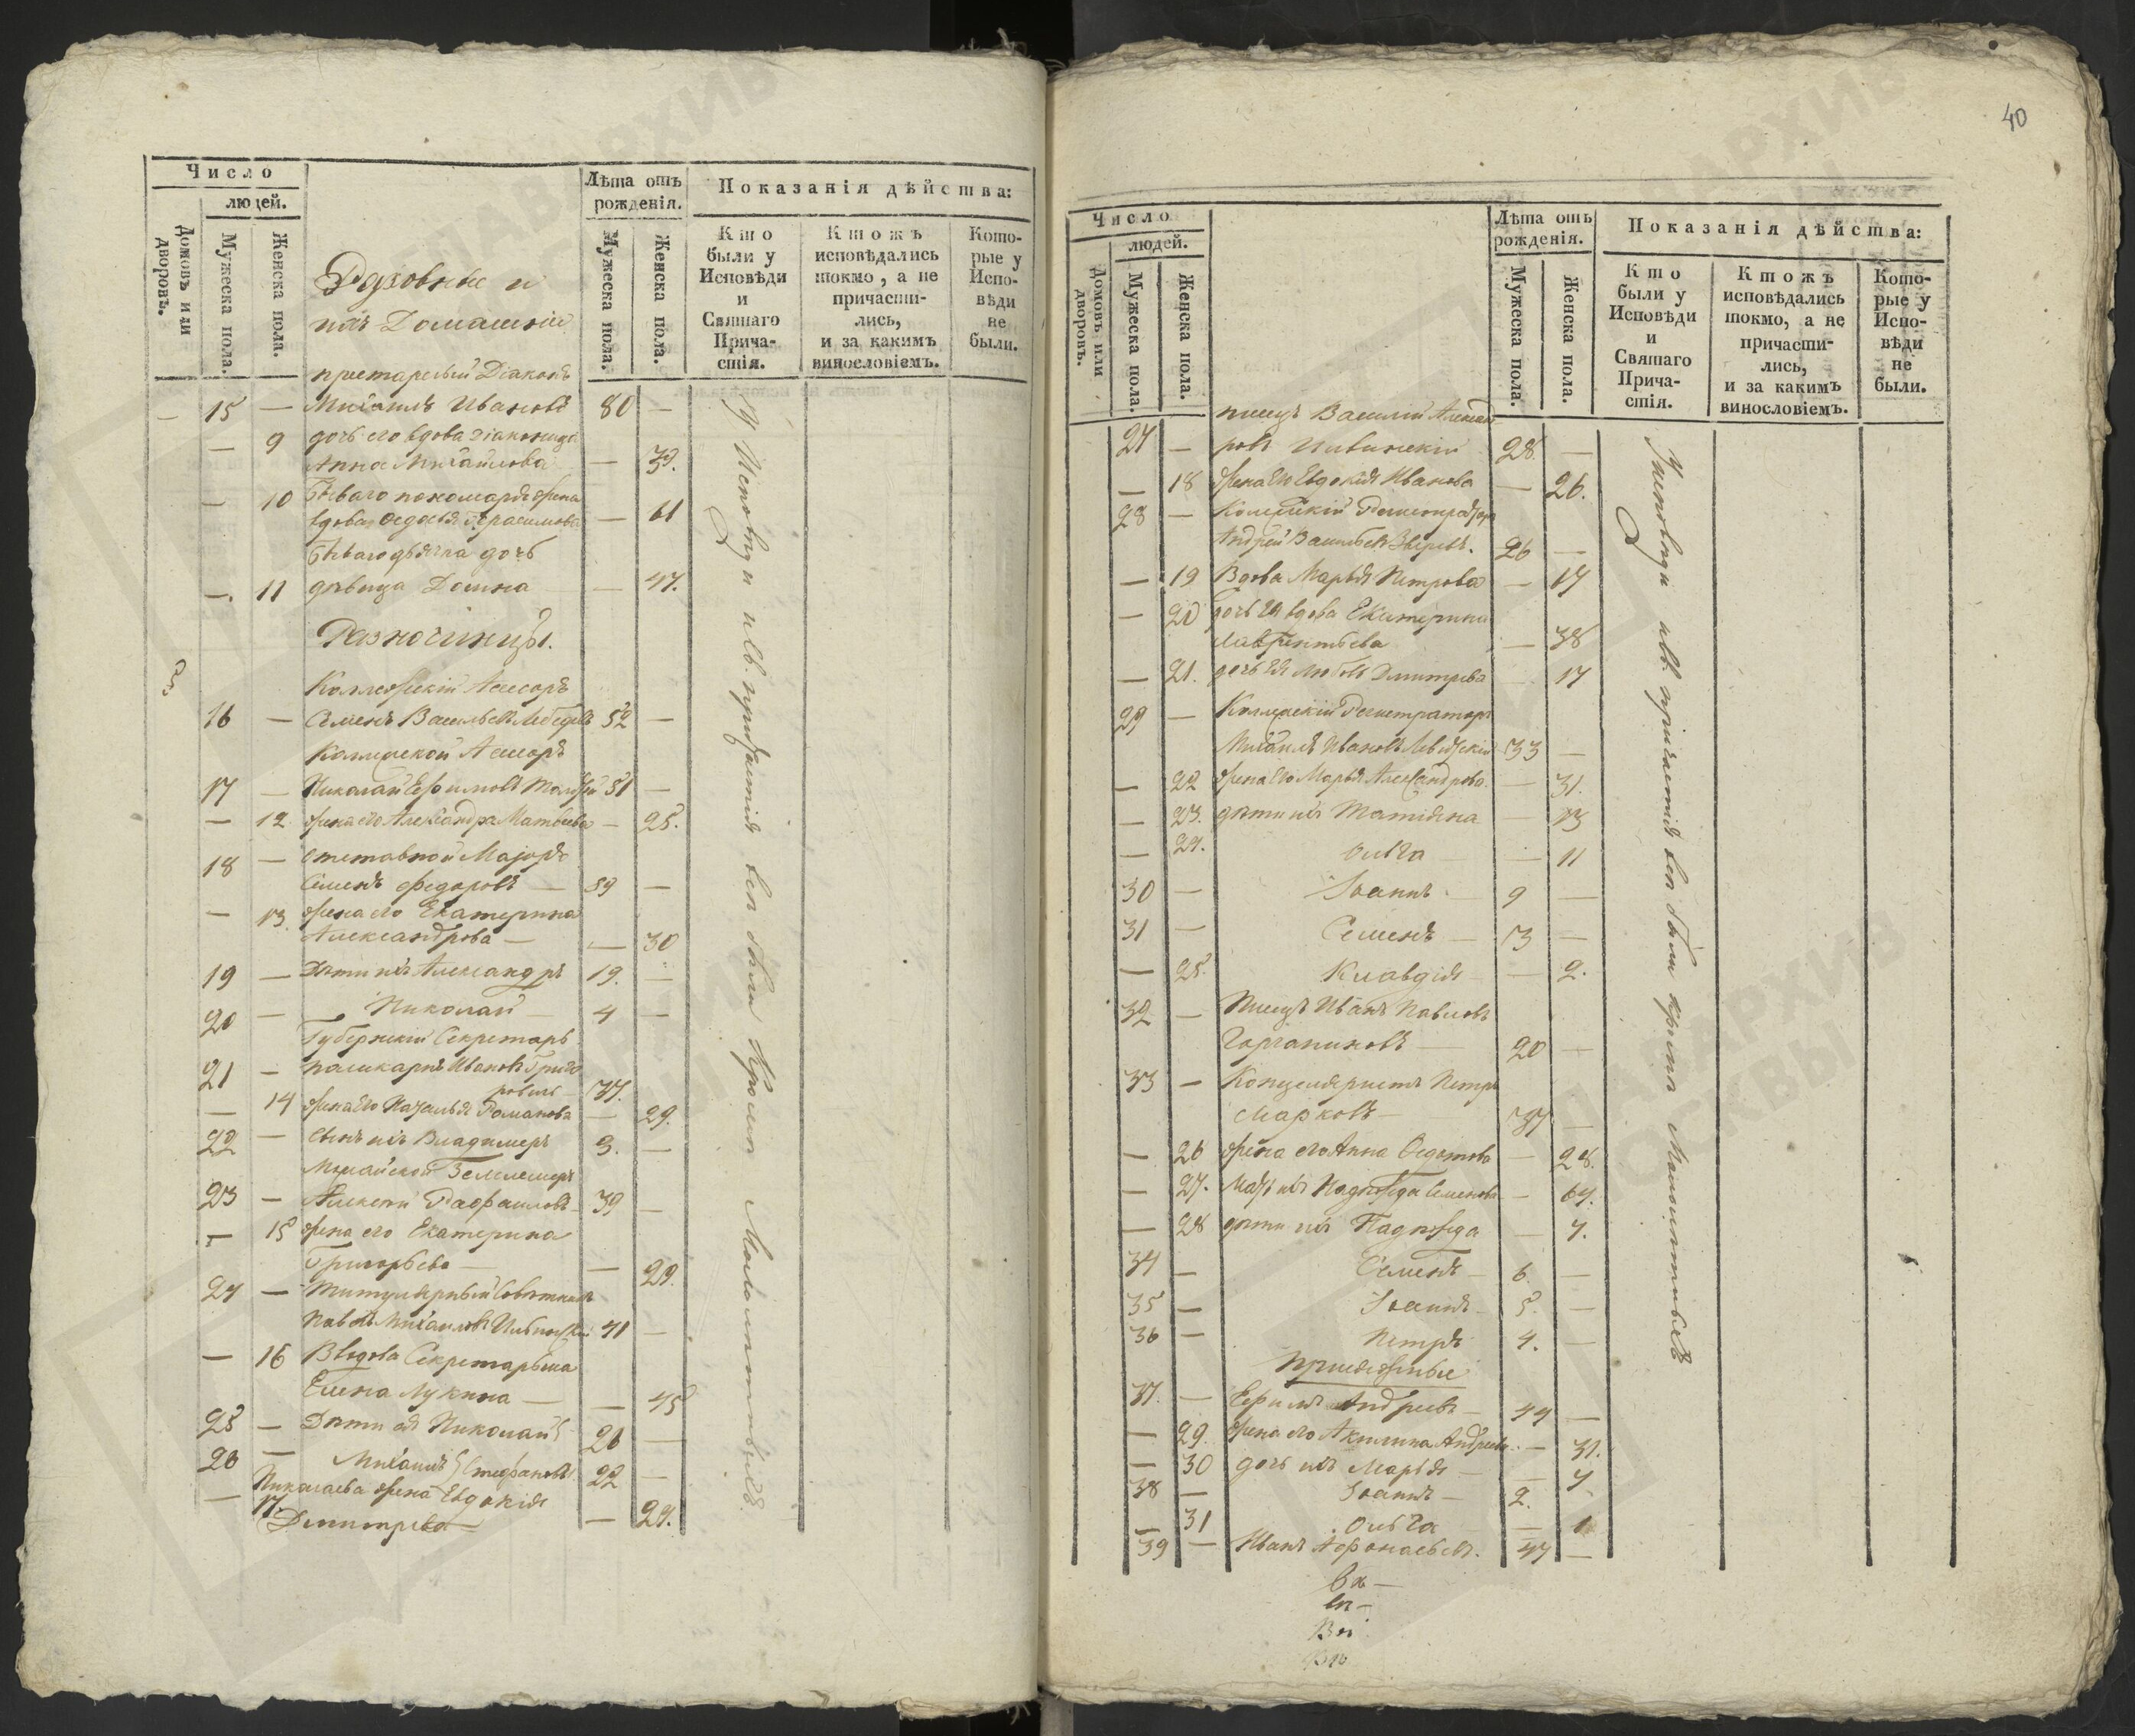 Число
людей.
Домовъ или дворовъ.
Мужеска пола.
Женска пола.
Духовные и
ихъ Домашніе
Лѣта отъ
рожденія.
Мужеска пола.
Женска пола.
Показанія дѣйства:
Кто
были у
Исповѣди
и
Святаго
Прича-
стія.
Ктожъ
исповѣдались
токмо, а не
причасти-
лись,
и за какимъ
винословіемъ.
Кото-
рые у
Испо-
вѣди
не
были.
престарелый Діаконъ
— 15 — Михаилъ Ивановъ 80 —
— 9 дочь его вдова діаконица
Анна Михайлова — 39.
— 10 бываго пономаря жена
вдова Федосья Герасимова — 61
бываго дьячка дочь
— 11 дѣвица Домна — 47.
Разночинцы.
Коллежскій Асесоръ
16 — Семенъ Васильевъ Лебедевъ 52 —
Коллежской Асесоръ
17 — Николай Ефимовъ 51 —
— 12 жена его Александра Матвеева — 25.
18 — отставной Маіоръ
Семенъ Федоровъ — 59 —
— 13 жена его Екатерина
Александрова — — 30
19 — Дѣти ихъ Александръ 19. —
20 — Николай 4 —
Губернскій Секретарь
21 — Ивановъ Григо
ровъ 37.
— 14 жена его Наталья Романова — 29.
22 — сынъ ихъ Владимеръ 3. —
Землемеръ
23 — Алексей Рафаиловъ 39 —
— 15 жена его Екатерина
Григорьева — — 29.
24 — Титулярный Советникъ
Павелъ Михайловъ 41 —
— 16 Вдова Секретарьша
Елена Лукина — — 45
25 — Дѣти ея Николай 26 —
26 — Михаилъ Стефановы 22 —
— 17. Николаева жена Евдокія
Димитріева — 24.
У Исповѣди и св. причастія все были кромѣ Малолѣтныхъ.
40
Число
людей.
Домовъ или дворовъ.
Мужеска пола.
Женска пола.
Лѣта отъ
рожденія.
Мужеска пола.
Женска пола.
Показанія дѣйства:
Кто
были у
Исповѣди
и
Святаго
Прича-
стія.
Ктожъ
исповѣдались
токмо, а не
причасти-
лись,
и за какимъ
винословіемъ.
Кото-
рые у
Испо-
вѣди
не
были.
писецъ Василій Александ
27 — ровъ 28. —
— 18 жена его Евдокія Иванова — 26.
28 — Колежскій Регистраторъ
Андрей Васильевъ Зверевъ. 26 —
— 19 Вдова Марья Петрова — 17
— 20 дочь ея вдова Екатерина
Лаврентьева — 38
— 21. дочь ея Любовь Дмитрева — 17
29 — Коллежскій Регистраторъ
Михаилъ Ивановъ 33 —
— 22 жена его Марья Александрова. — 31.
— 23. дѣти ихъ Татіяна — 13
— 24. Ольга — 11
30 — Іоаннъ 9 —
31 — Семенъ — 3 —
— 25. Клавдія — 2.
32 — Писецъ Иванъ Павловъ
20 —
33 — Канцеляристъ Петръ
Марковъ — 37 —
— 26 жена его Анна Федотова — 28.
— 27. Мать ихъ Надежда Семенова — 67.
— 28 дѣти ихъ Надежда — 7.
34 — Семенъ — 6. —
35 — Іоаннъ — 5. —
36 — Петръ 4. —
присяжные
37. — Ефимъ Андреевъ — 44 —
— 29. жена его Акилина Андреева — 31.
— 30 дочь ихъ Марья — — 7.
38 — Іоаннъ — 2. —
— 31 Ольга — 1
39 — Иванъ Афонасьевъ. 47 —
У исповѣди и св. причастія все были кромѣ Малолѣтныхъ